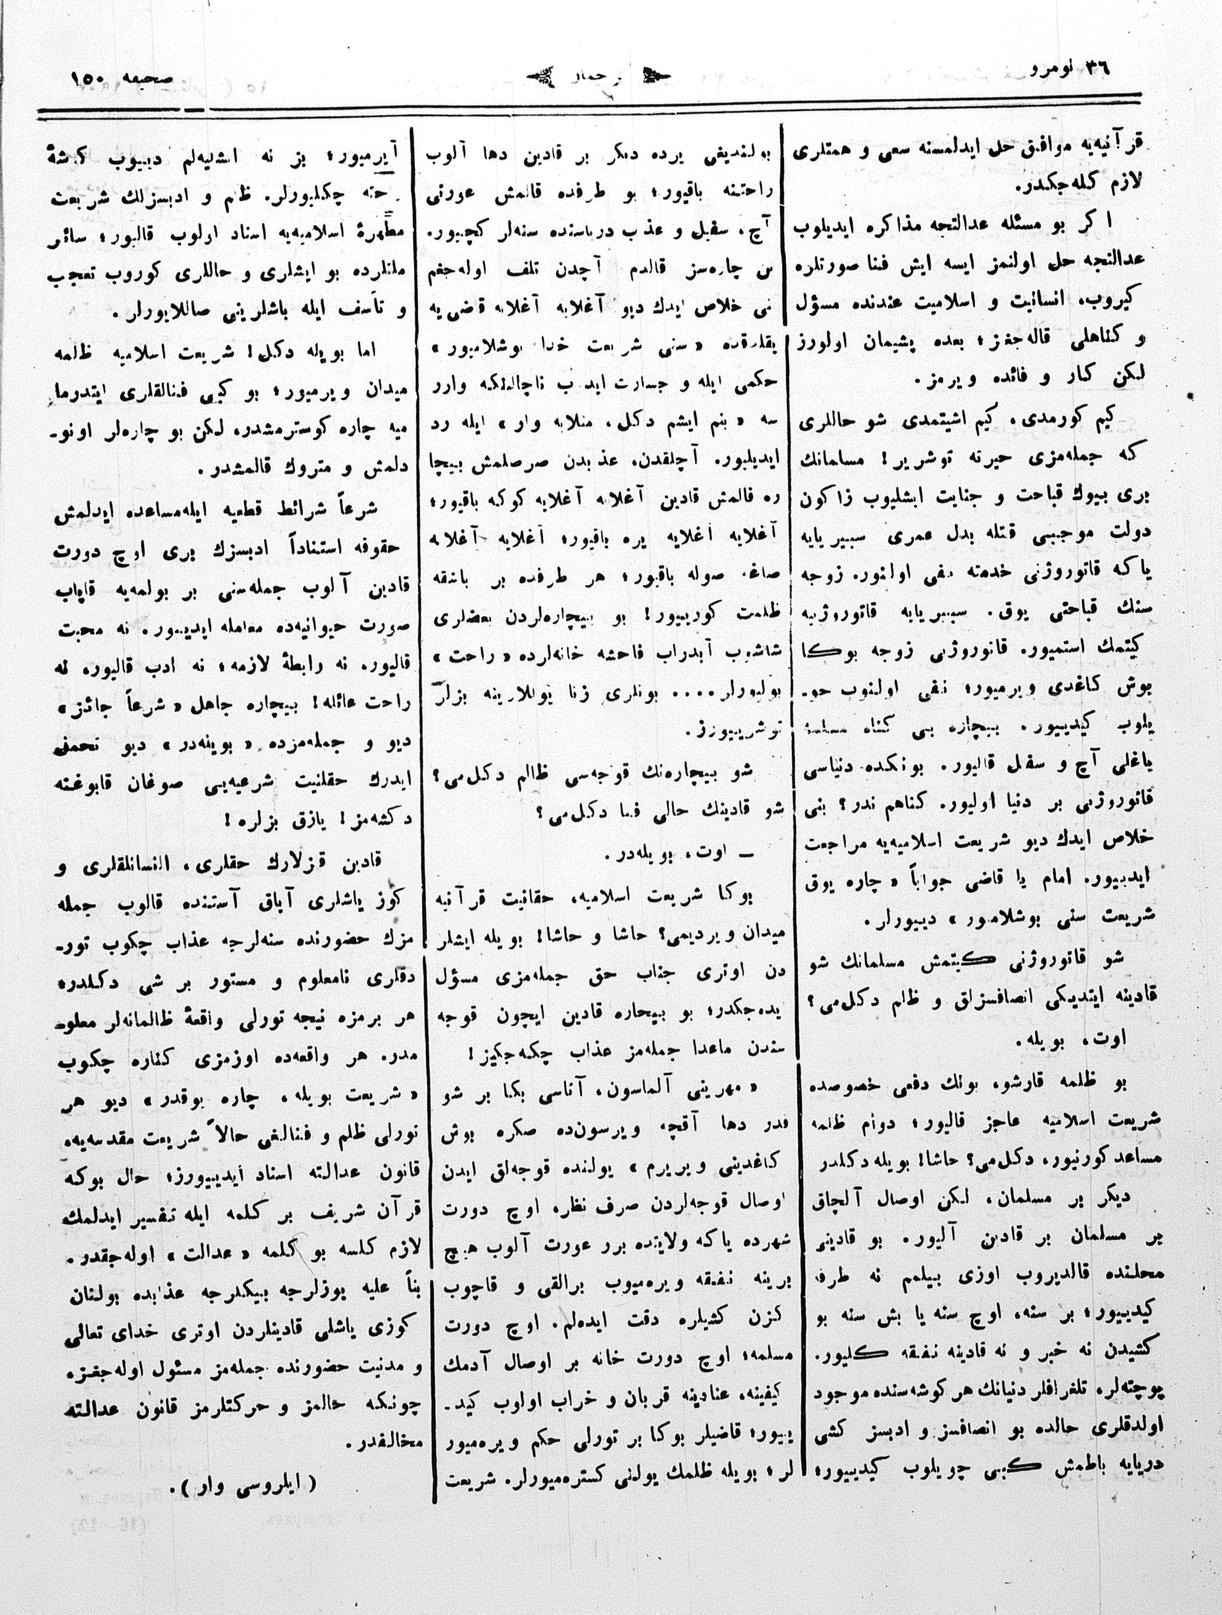 ٣٦ نومرو
ترجمان
صحيفه ١٥٠
قرآنيه‌يه موافق حل ايدلمسنه سعى و همتلرى
لازم كله‌جكدر.
اكر بو مسئله عدالتجه مذاكره ايديلوب
عدالتجه حل اولنمز ايسه ايش فنا صورتلره
كيروب، انسانيت و اسلاميت عندنده مسؤل
و كناهلى قاله‌جغز؛ بعده پشيمان اولورز
لكن كار و فائده ويرمز.
كيم كورمدى، كيم اشيتمدى شو حاللرى
كه جمله‌مزى حيرته توشرير! مسلمانك
برى بيوك قباحت و جنايت ايشليوب زاكون
دولت موجبى قتله بدل عمرى سيبيريايه
ياكه قاتوروژنى خدمته نفى اولنور. زوجه
سنك قباحتى يوق. سيبيريايه قاتوروژنيه
كيتمك استميور. قاتوروژنى زوجه بوكا
بوش كاغدى ويرميور؛ نفى اولنوب جو-
يلوب كيدييور. بيچاره بى كناه مسلمه
ياغلى آچ و سفل قاليور. بونكده دنياسى
قاتوروژنى بر دنيا اوليور. كناهم ندر؟ بنى
خلاص ايدك ديو شريعت اسلاميه‌يه مراجعت
ايدييور. امام يا قاضى جواباً «چاره يوق
شريعت سنى بوشلاميور» دييورلر.
شو قاتوروژنى كيتمش مسلمانك شو
قادينه ايتديكى انصافسزلق و ظلم دكل‌مى؟
اوت، بويله.
بو ظلمه قارشو، بونك دفعى خصوصده
شريعت اسلاميه عاجز قاليور؛ دوام ظلمه
مساعد كورنيور، دكل‌مى؟ حاشا! بويله دكلدر
ديكر بر مسلمان، لكن اوصال آلچاق
بر مسلمان بر قادين آليور. بو قادينى
محلنده قالديروب اوزى بيلمم نه طرفه
كيدييور؛ بر سنه، اوچ سنه يا بش سنه بو
كشيدن نه خبر و نه قادينه نفقه كليور.
پوچته‌لر، تلغرافلر دنيانك هر كوشه‌سنده موجود
اولدقلرى حالده بو انصافسز و ادبسز كشى
دريايه باطمش كبى چويلوب كيدييور؛
بولنديغى يرده ديكر بر قادين دها آلوب
راحتنه باقيور؛ بو طرفده قالمش عورتى
آچ، سفيل و عذب درياسنده سنه‌لر كچييور.
بن چاره‌سز قالدم آچدن تلف اوله‌جغم
بنى خلاص ايدك ديو آغلايه آغلايه قاضى‌يه
يقلدقده «سنى شريعت خدا بوشلاميور»
حكمى ايله و جسارت ايدوب ناچالنكه وارر
سه «بنم ايشم دكل، منلايه وار» ايله رد
ايديليور. آچلقدن، عذبدن صرصلمش بيچا
ره قالمش قادين آغلايه آغلايه كوكه باقيور؛
آغلايه آغلايه يره باقيور؛ آغلايه آغلايه
صاغه صوله باقيور؛ هر طرفده بر باشقه
ظلمت كورييور! بو بيچاره‌لردن بعضلرى
شاشوب آيدراب فاحشه خانه‌لرده «راحت»
بوليورلر.... بونلرى زنا يوللارينه بزلر
توشرييورز.
شو بيچاره‌نك قوجه‌سى ظالم دكل‌مى؟
شو قادينك حالى فنا دكل‌مى؟
— اوت، بويله‌در.
بوكا شريعت اسلاميه، حقانيت قرآنيه
ميدان ويرديمى؟ حاشا و حاشا! بويله ايشلر
دن اوترى جناب حق جمله‌مزى مسؤل
يده‌جكدر؛ بو بيچاره قادين ايچون قوجه
سندن ماعدا جمله‌مز عذاب چكه‌جكيز!
«مهرينى آلماسون، آناسى بكا بر شو
قدر دها آقچه ويرسون‌ده صكره بوش
كاغدينى ويريرم» يولنده قوجه‌لق ايدن
اوصال قوجه‌لردن صرف نظر، اوچ دورت
شهرده ياكه ولايتده برر عورت آلوب هيچ
برينه نفقه ويره‌ميوب براقى و قاچوب
كزن كشيلره دقت ايده‌لم. اوچ دورت
مسلمه؛ اوچ دورت خانه بر اوصال آدمك
كيفينه، عنادينه قربان و خراب اولوب كيد-
ييور؛ قاضيلر بوكا بر تورلى حكم ويره‌ميور
لر؛ بويله ظلمك يولنى كستره‌ميورلر. شريعت
آيرميور؛ بز نه اشليه‌لم دييوب كوشهٔ
راحته چكلييورلر. ظلم و ادبسزلك شريعت
مطهرهٔ اسلاميه‌يه اسناد اولوب قاليور؛ سائر
ملتلرده بو ايشلرى و حاللرى كوروب تعجب
و تأسف ايله باشلرينى صاللايورلر.
اما بويله دكل! شريعت اسلاميه ظالمه
ميدان ويرميور؛ بو كبى فنالقلرى ايتدرما
ميه چاره كوسترمشدر، لكن بو چاره‌لر اونو-
دلمش و متروك قالمشدر.
شرعاً شرائط قطعيه ايله مساعده ايدلمش
حقوقه استناداً ادبسزك برى اوچ دورت
قادين آلوب جمله‌سنى بر بولمه‌يه قاپاب
صورت حيوانيه‌ده معامله ايدييور. نه محبت
قاليور، نه رابطهٔ لازمه؛ نه ادب قاليور، نه
راحت عائله! بيچاره جاهل «شرعاً جائز»
ديو و جمله‌مزده «بوينه‌در» ديو تحمل
ايدرك حقلنيت شرعيه‌يى صوغان قابوغنه
دكشه‌مز! يازق بزلره!
قادين قزلارك حقلرى، انسانلقلرى و
كوز ياشلرى آياق آستنده قالوب جمله
مزك حضورنده سنه‌لرجه عذاب چكوب تور-
دقلرى نامعلوم و مستور بر شى دكلدر؛
هر برمزه نيجه تورلى واقعهٔ ظالمانه‌لر معلو-
مدر. هر واقعه‌ده اوزمزى كناره چكوب
«شريعت بويله، چاره يوقدر» ديو هر
تورلى ظلم و فنالغى حالاً شريعت مقدسه‌يه،
قانون عدالته اسناد ايدييورز؛ حال بوكه
قرآن شريف بر كلمه ايله تفسير ايدلمك
لازم كلسه بو كلمه «عدالت» اوله‌جقدر.
بناً عليه يوزلرجه بيكلرجه عذابده بولنان
كوزى ياشلى قادينلردن اوترى خداى تعالى
و مدنيت حضورنده جمله‌مز مسئول اوله‌جغز،
چونكه حالمز و حركتلرمز قانون عدالته
مخالفدر.
(ايلروسى وار).